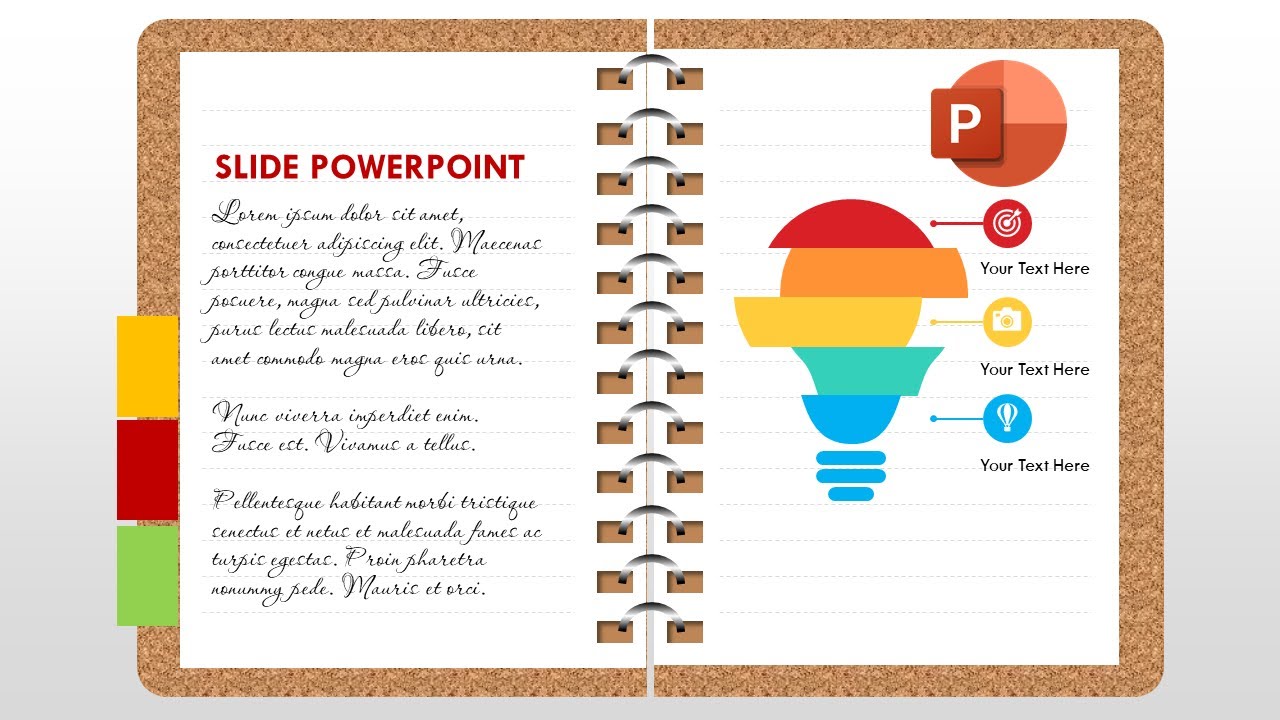 SLIDE POWERPOINT
Lorem ipsum dolor sit amet,
consectetuer adipiscing elit. Maecenas
porttitor congue massa. Fusce
posuere, magna sed pulvinar ultricies,
purus lectus malesuada libero, sit
amet commodo magna eros quis urna.
Nunc viverra imperdiet enim.
Fusce est. Vivamus a tellus.
Pellentesque habitant morbi tristique
senectus et netus et malesuada fames ac
turpis egestas. Proin pharetra
nonummy pede. Mauris et orci.
P
Your Text Here
Your Text Here
Your Text Here